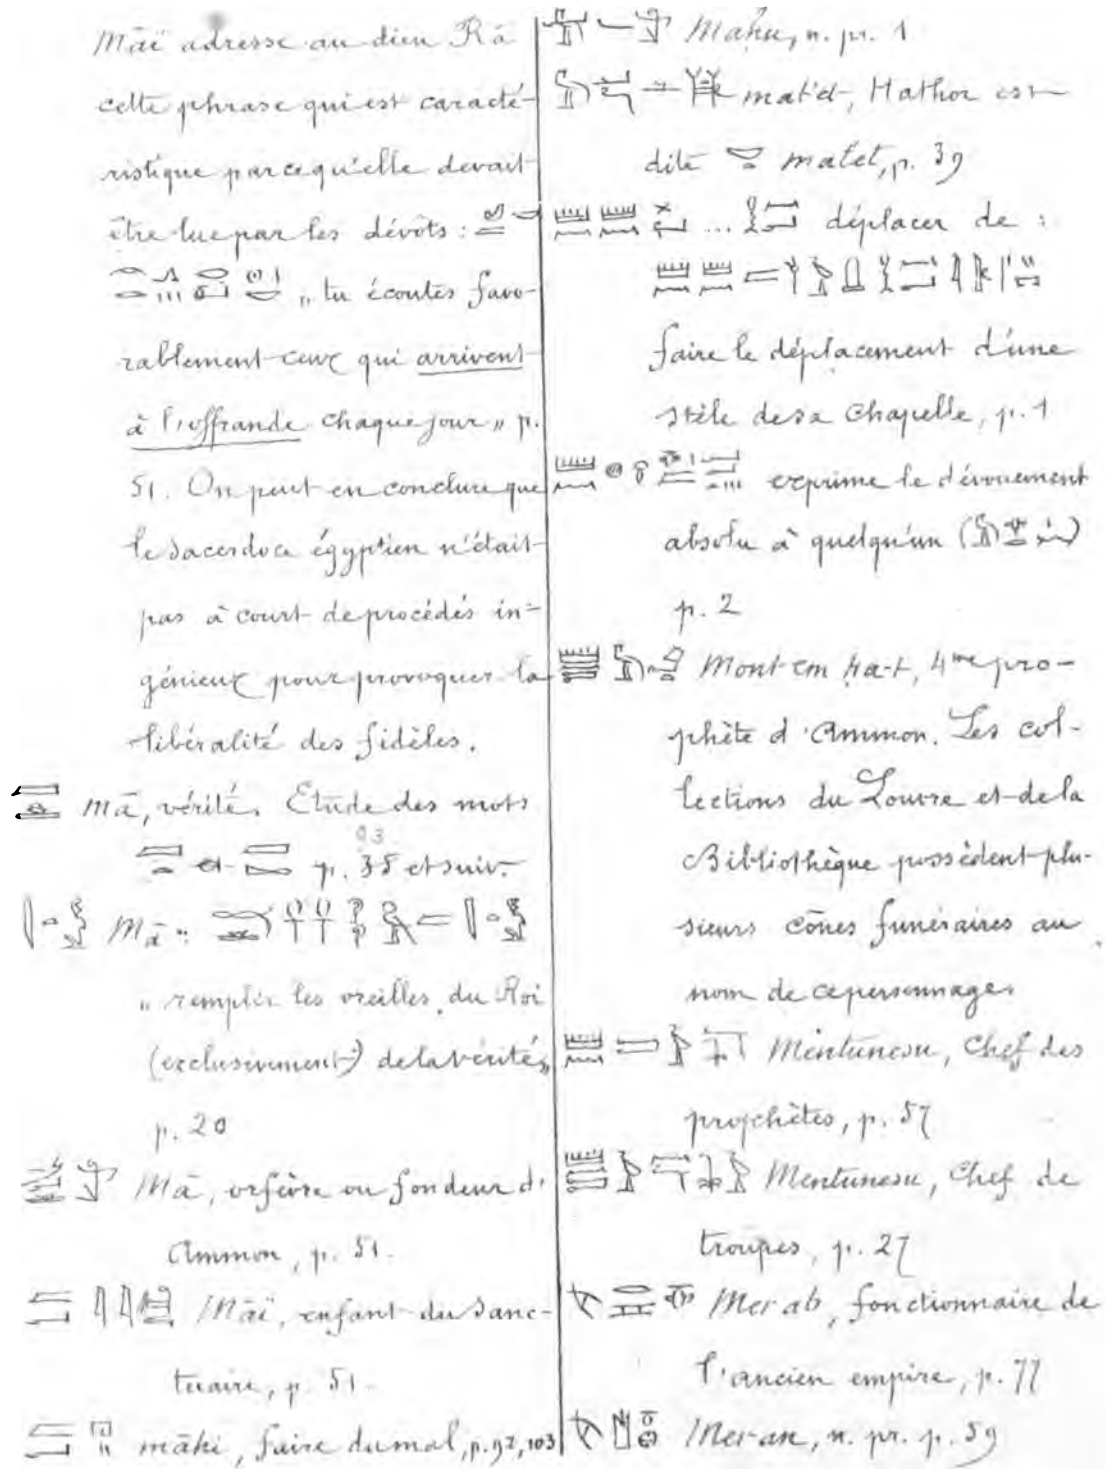 Māï adresse au dieu Rā
cette phrase qui est caracté-
ristique parce qu'elle devait
être lue par les dévôts :
„ tu écoutes favo-
rablement ceux qui arrivent
à l'offrande chaque jour „ p.
51. On peut en conclure que
le sacerdoce égyptien n'était
pas à court de procédés in-
génieux pour provoquer la
libéralité des fidèles.
Mā, vérité. Etude des mots
et p. 93 et suiv.
Mā :
„ remplir les oreilles du Roi
(exclusivement) de la vérité „
p. 20
Mā, orfèvre ou fondeur d'
Ammon, p. 51.
Māï, enfant du sanc-
tuaire, p. 51.
māhi, faire du mal, p. 92, 103
Mahu, n. pr. 1
mat'et, Hathor est
dite mat'et, p. 39
... déplacer de :
faire le déplacement d'une
stèle de sa Chapelle, p. 1
exprime le dévouement
absolu à quelqu'un ( )
p. 2
Mont em ha-t, 4me pro-
phète d'Ammon. Les col-
lections du Louvre et de la
Bibliothèque possèdent plu-
sieurs cônes funéraires au
nom de ce personnage
Mentunesu, Chef des
prophètes, p. 57
Mentunesu, Chef de
troupes, p. 27
Mer ab, fonctionnaire de
l'ancien empire, p. 77
Mer-an, n. pr. p. 59